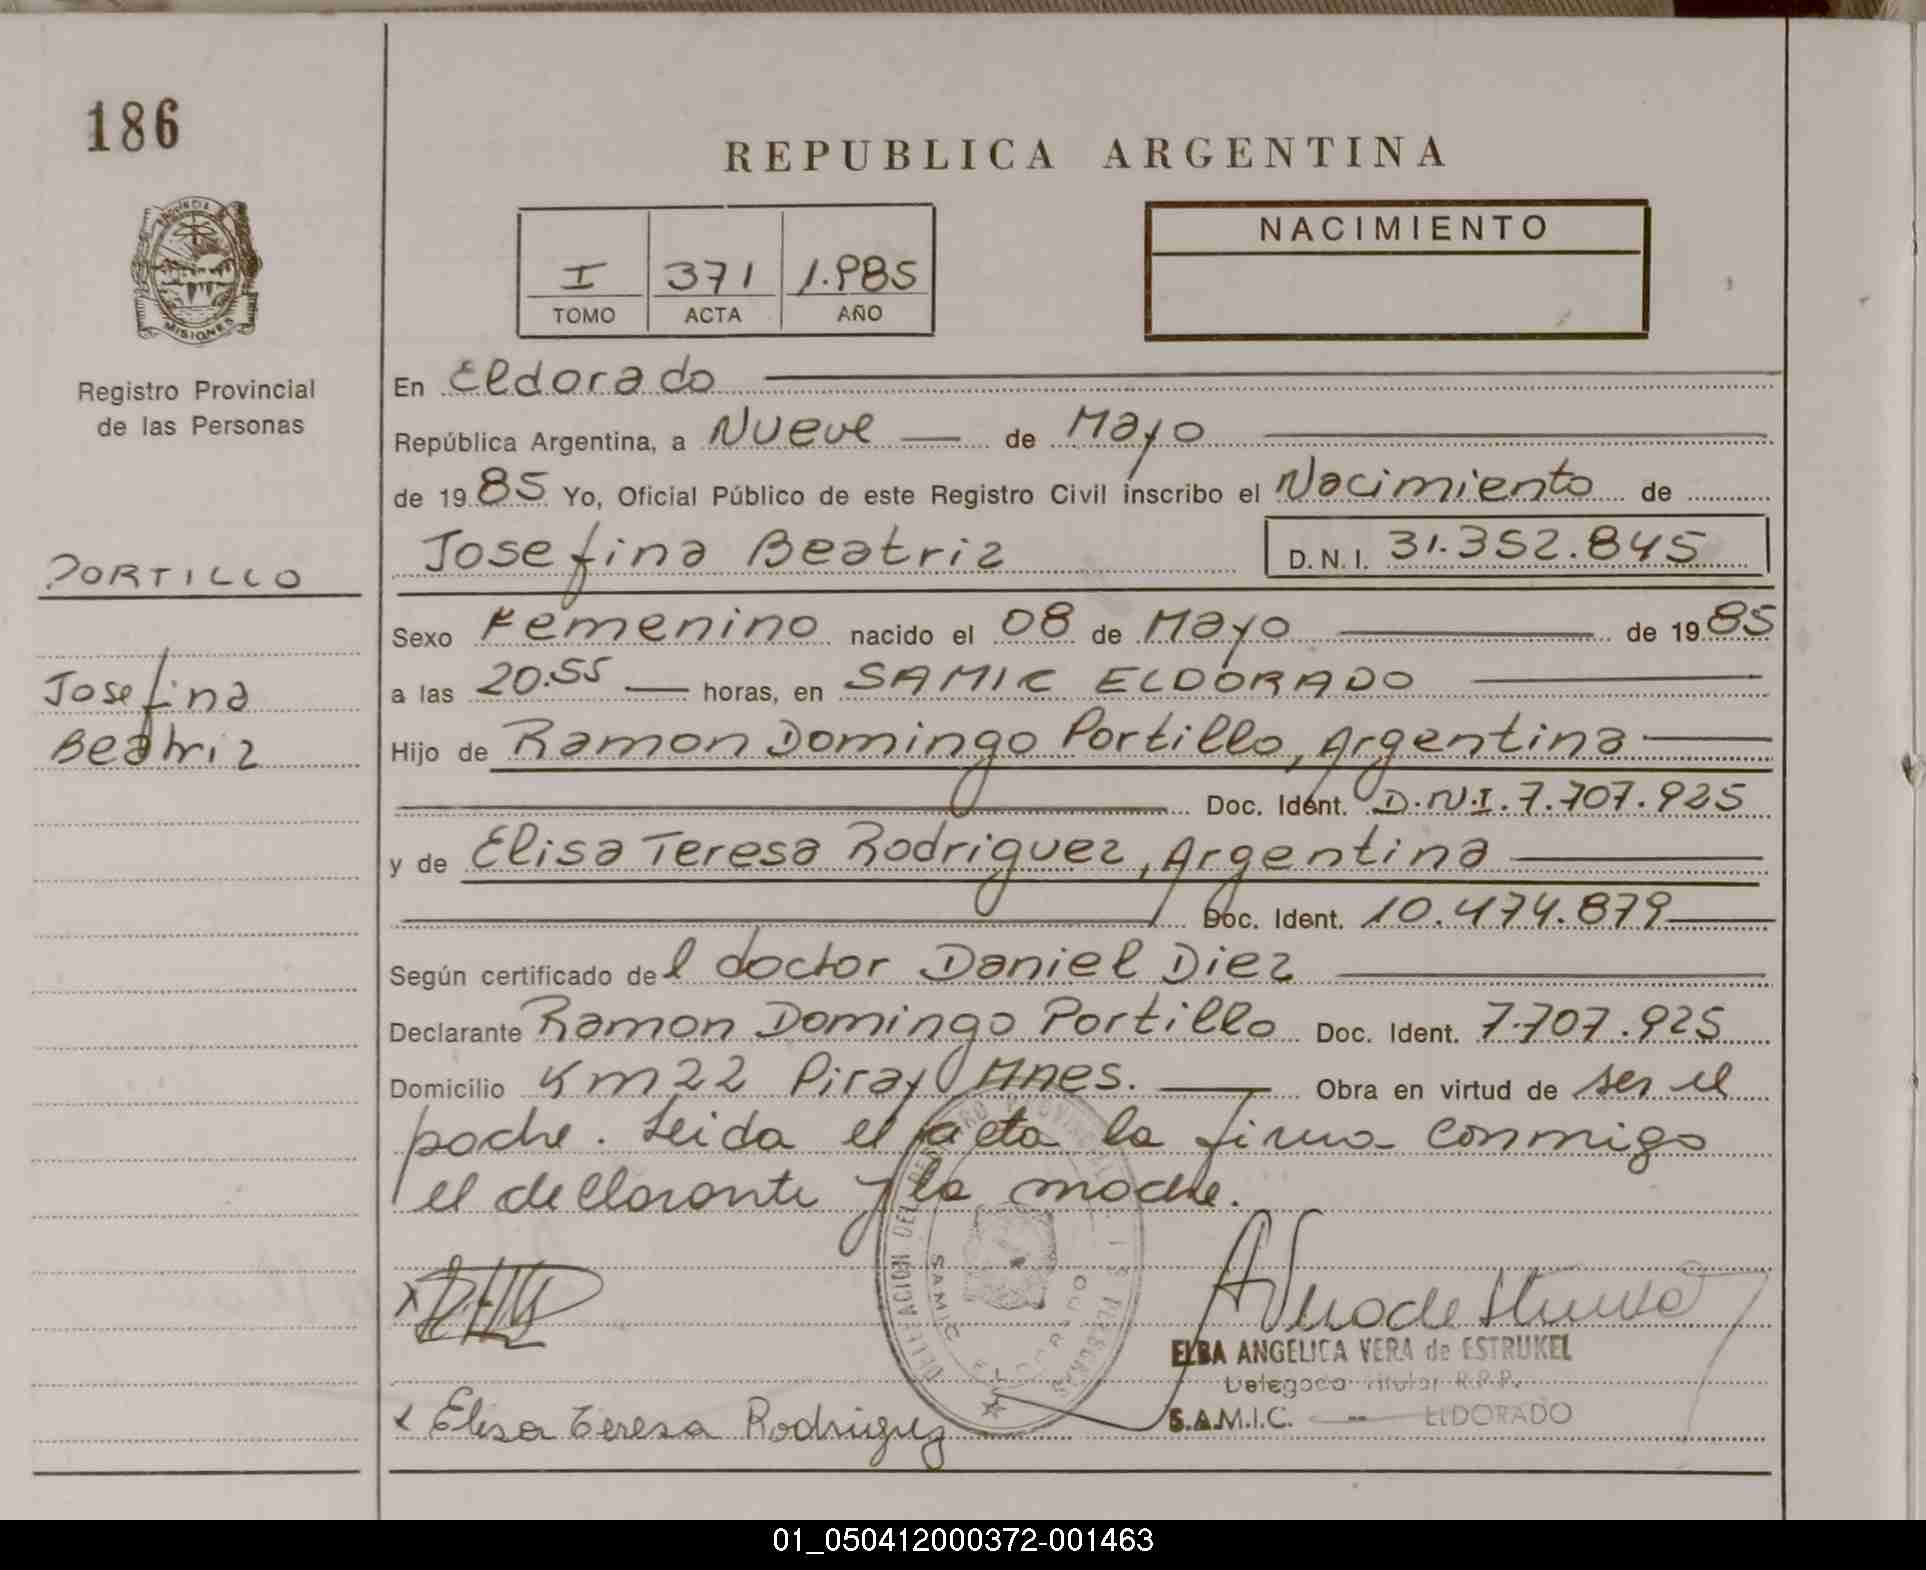 186
REPUBLICA ARGENTINA
PROVINCIA DE
MISIONES
Registro Provincial
de las Personas
I 371 1.985
TOMO ACTA AÑO
NACIMIENTO
En Eldorado
República Argentina, a Nueve de Mayo
de 1985 Yo, Oficial Público de este Registro Civil inscribo el Nacimiento de
Josefina Beatriz D.N.I. 31.352.845
PORTILLO
Josefina
Beatriz
Sexo Femenino nacido el 08 de Mayo de 1985
a las 20.55 horas, en SAMIC ELDORADO
Hijo de Ramon Domingo Portillo, Argentina
Doc. Ident. D.N.I. 7.707.925
y de Elisa Teresa Rodriguez, Argentina
Doc. Ident. 10.474.879
Según certificado del doctor Daniel Diez
Declarante Ramon Domingo Portillo Doc. Ident. 7.707.925
Domicilio Km 22 Piray Mnes. Obra en virtud de ser el
padre. Leida el acta la firma conmigo
el declarante y la madre.
DELEGACION DEL REGISTRO PROVINCIAL DE LAS PERSONAS
SAMIC ELDORADO
ELBA ANGELICA VERA de ESTRUKEL
Delegada Titular R.P.P.
S.A.M.I.C. -- ELDORADO
x Elisa Teresa Rodriguez
01_050412000372-001463